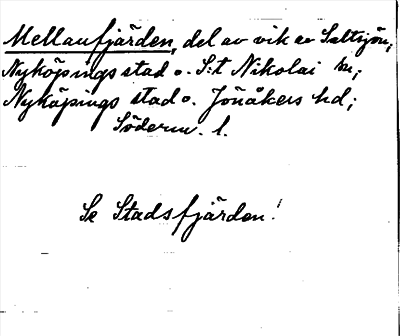 Mellanfjärden, del av vik av Saltsjön;
Nyköpings stad o. S:t Nikolai sn;
Nyköpings stad o. Jönåkers hd;
Söderm. l.
Se Stadsfjärden!